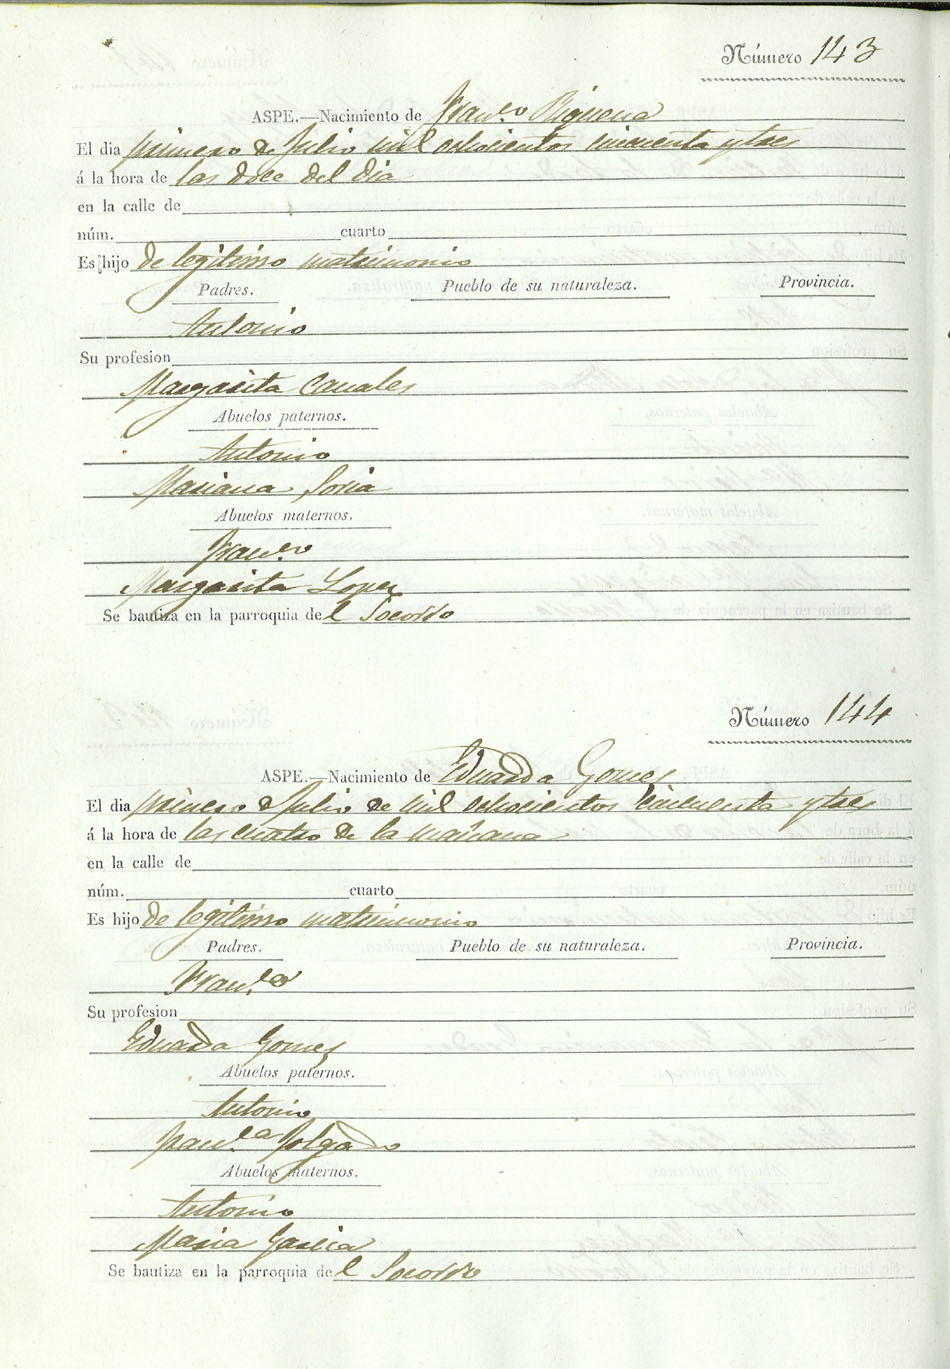 Número 143
ASPE.—Nacimiento de Franco Riquena
El dia primero de Julio mil ochocientos cincuenta y tres
á la hora de las doce del dia
en la calle de
núm. cuarto
Es hijo de legitimo matrimonio
Padres. Pueblo de su naturaleza. Provincia.
Antonio
Su profesion
Margarita Canales
Abuelos paternos.
Antonio
Mariana Soria
Abuelos maternos.
Franco
Margarita Lopez
Se bautiza en la parroquia del Socorro
Número 144
ASPE.—Nacimiento de Eduarda Gomez
El dia primero de Julio de mil ochocientos cincuenta y tres
á la hora de las cuatro de la mañana
en la calle de
núm. cuarto
Es hijo de legitimo matrimonio
Padres. Pueblo de su naturaleza. Provincia.
Franco
Su profesion
Eduarda Gomez
Abuelos paternos.
Antonio
Franca
Abuelos maternos.
Antonio
Maria Garcia
Se bautiza en la parroquia del Socorro